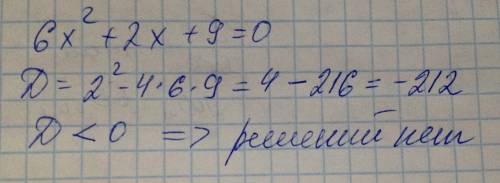 6x² + 2x + 9 = 0
D = 2² - 4·6·9 = 4 - 216 = -212
D < 0 => решений нет